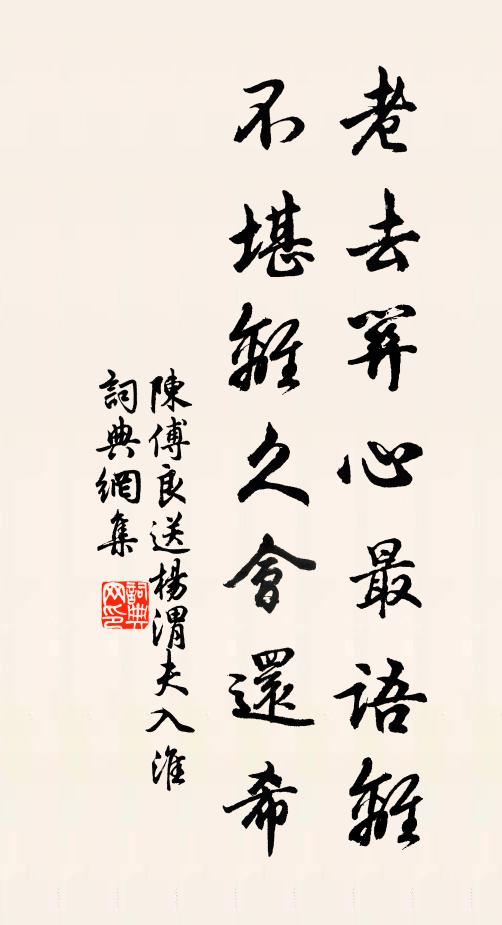 老去關心最語離
不堪離久會還希
陳傅良送楊渭夫入淮
詞典網集
詞典網印